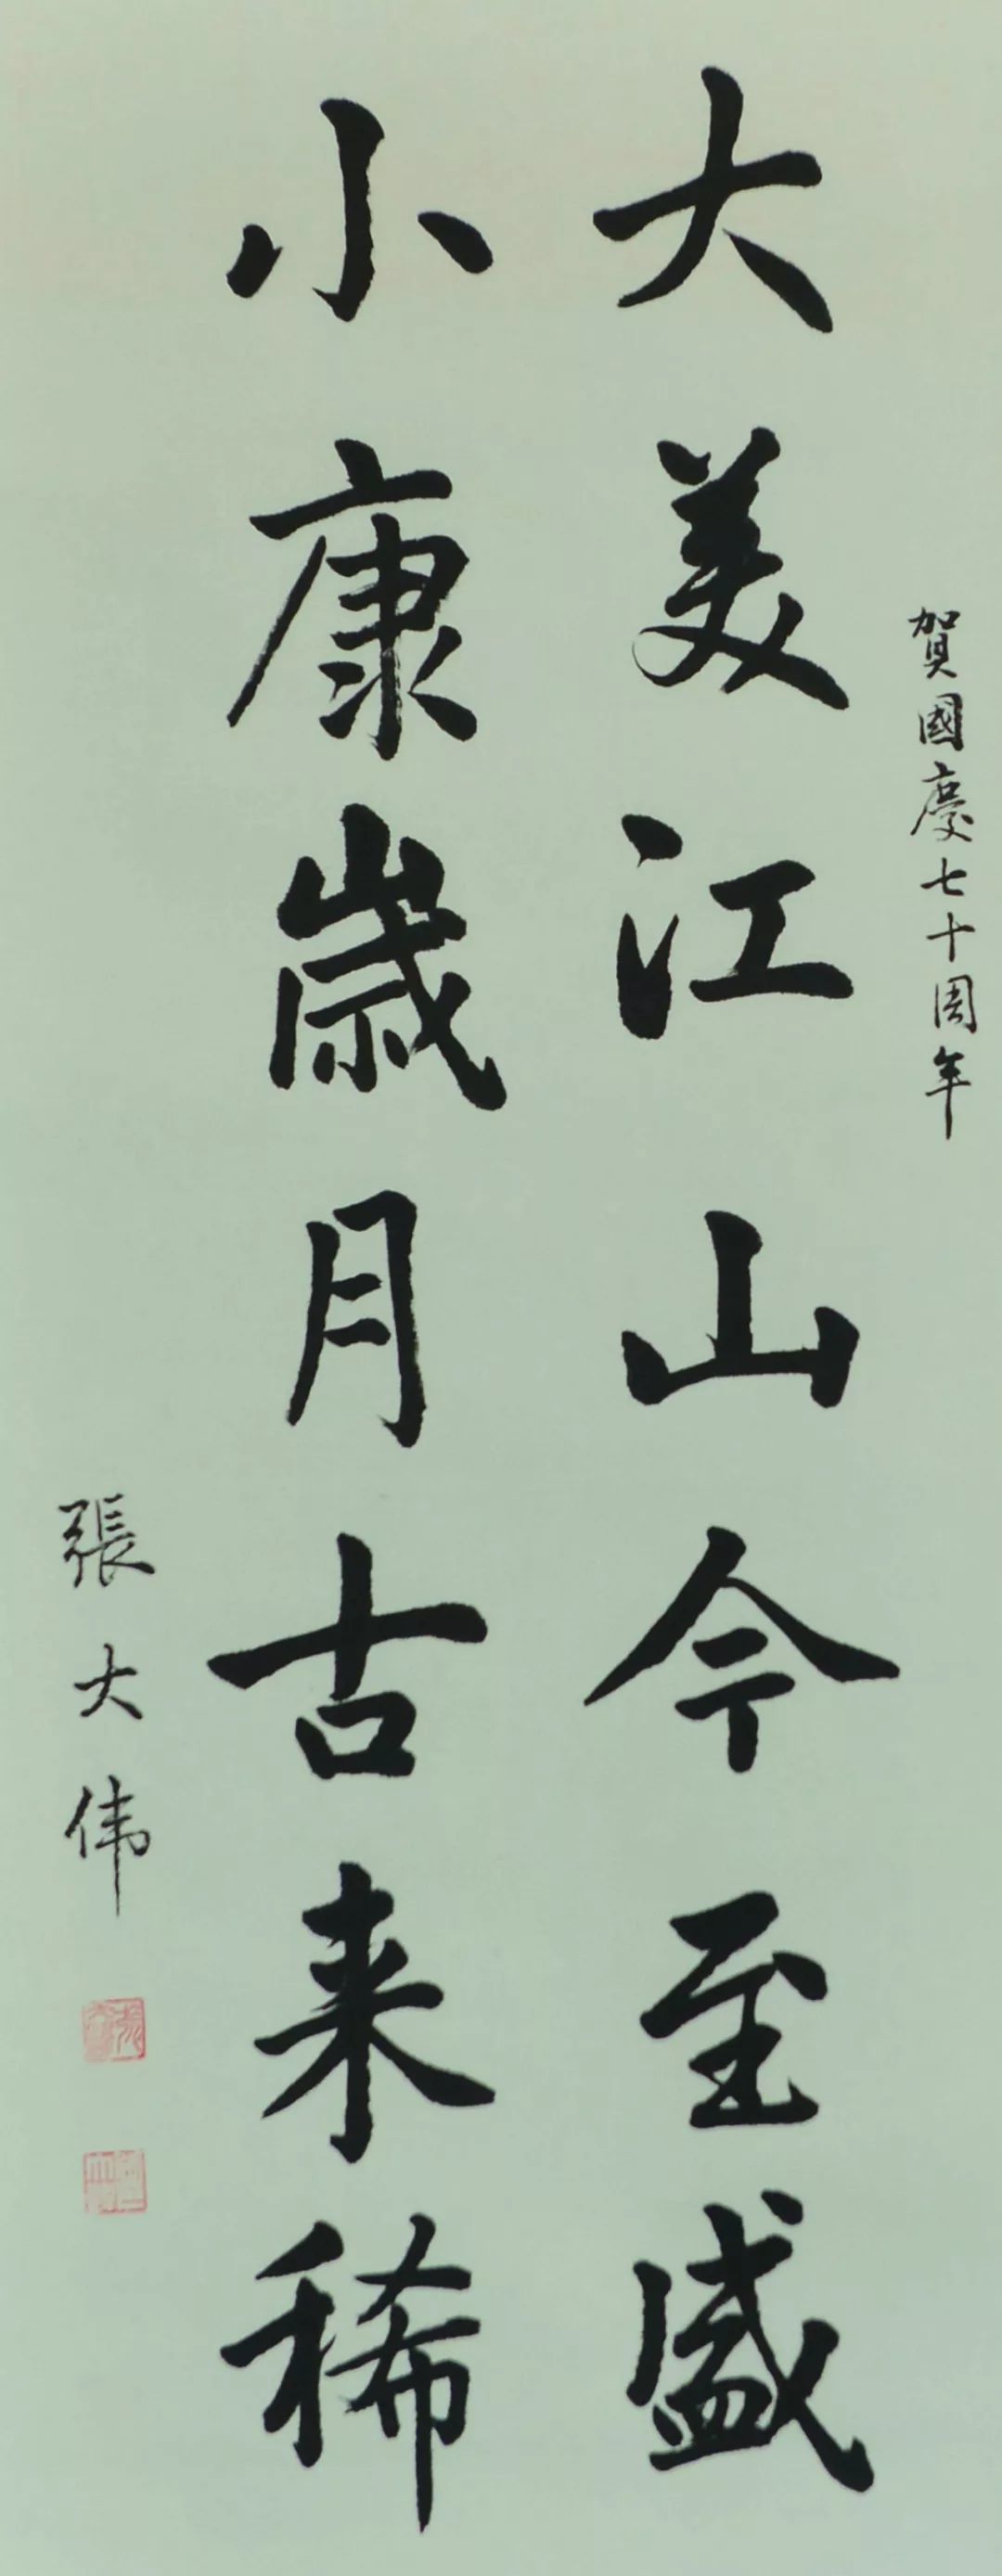 賀國慶七十周年
大美江山今至盛
小康歲月古来稀
張大伟